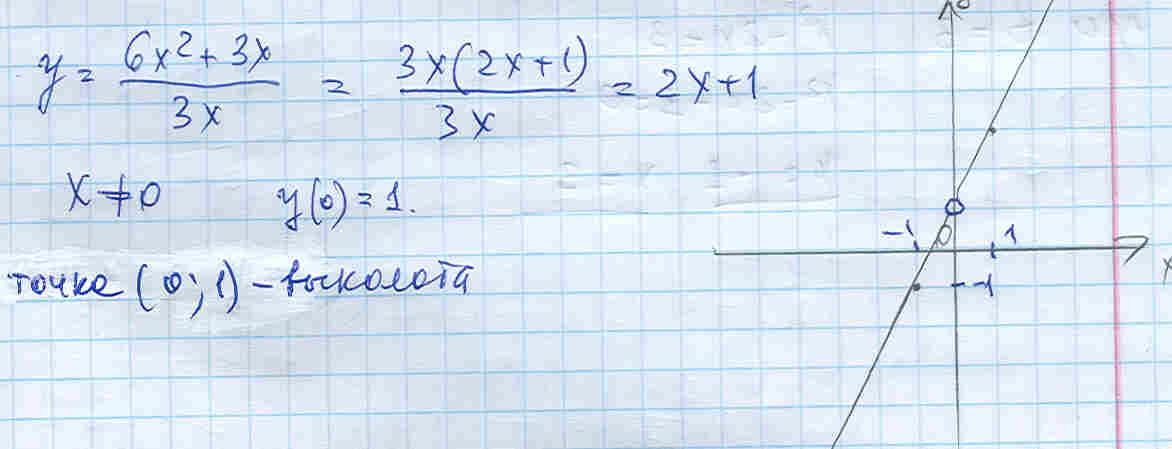 y = (6x² + 3x)/(3x) = (3x(2x+1))/(3x) = 2x+1
x ≠ 0 y(0) = 1.
точка (0;1) – выколота
-1 0 1
-1
x